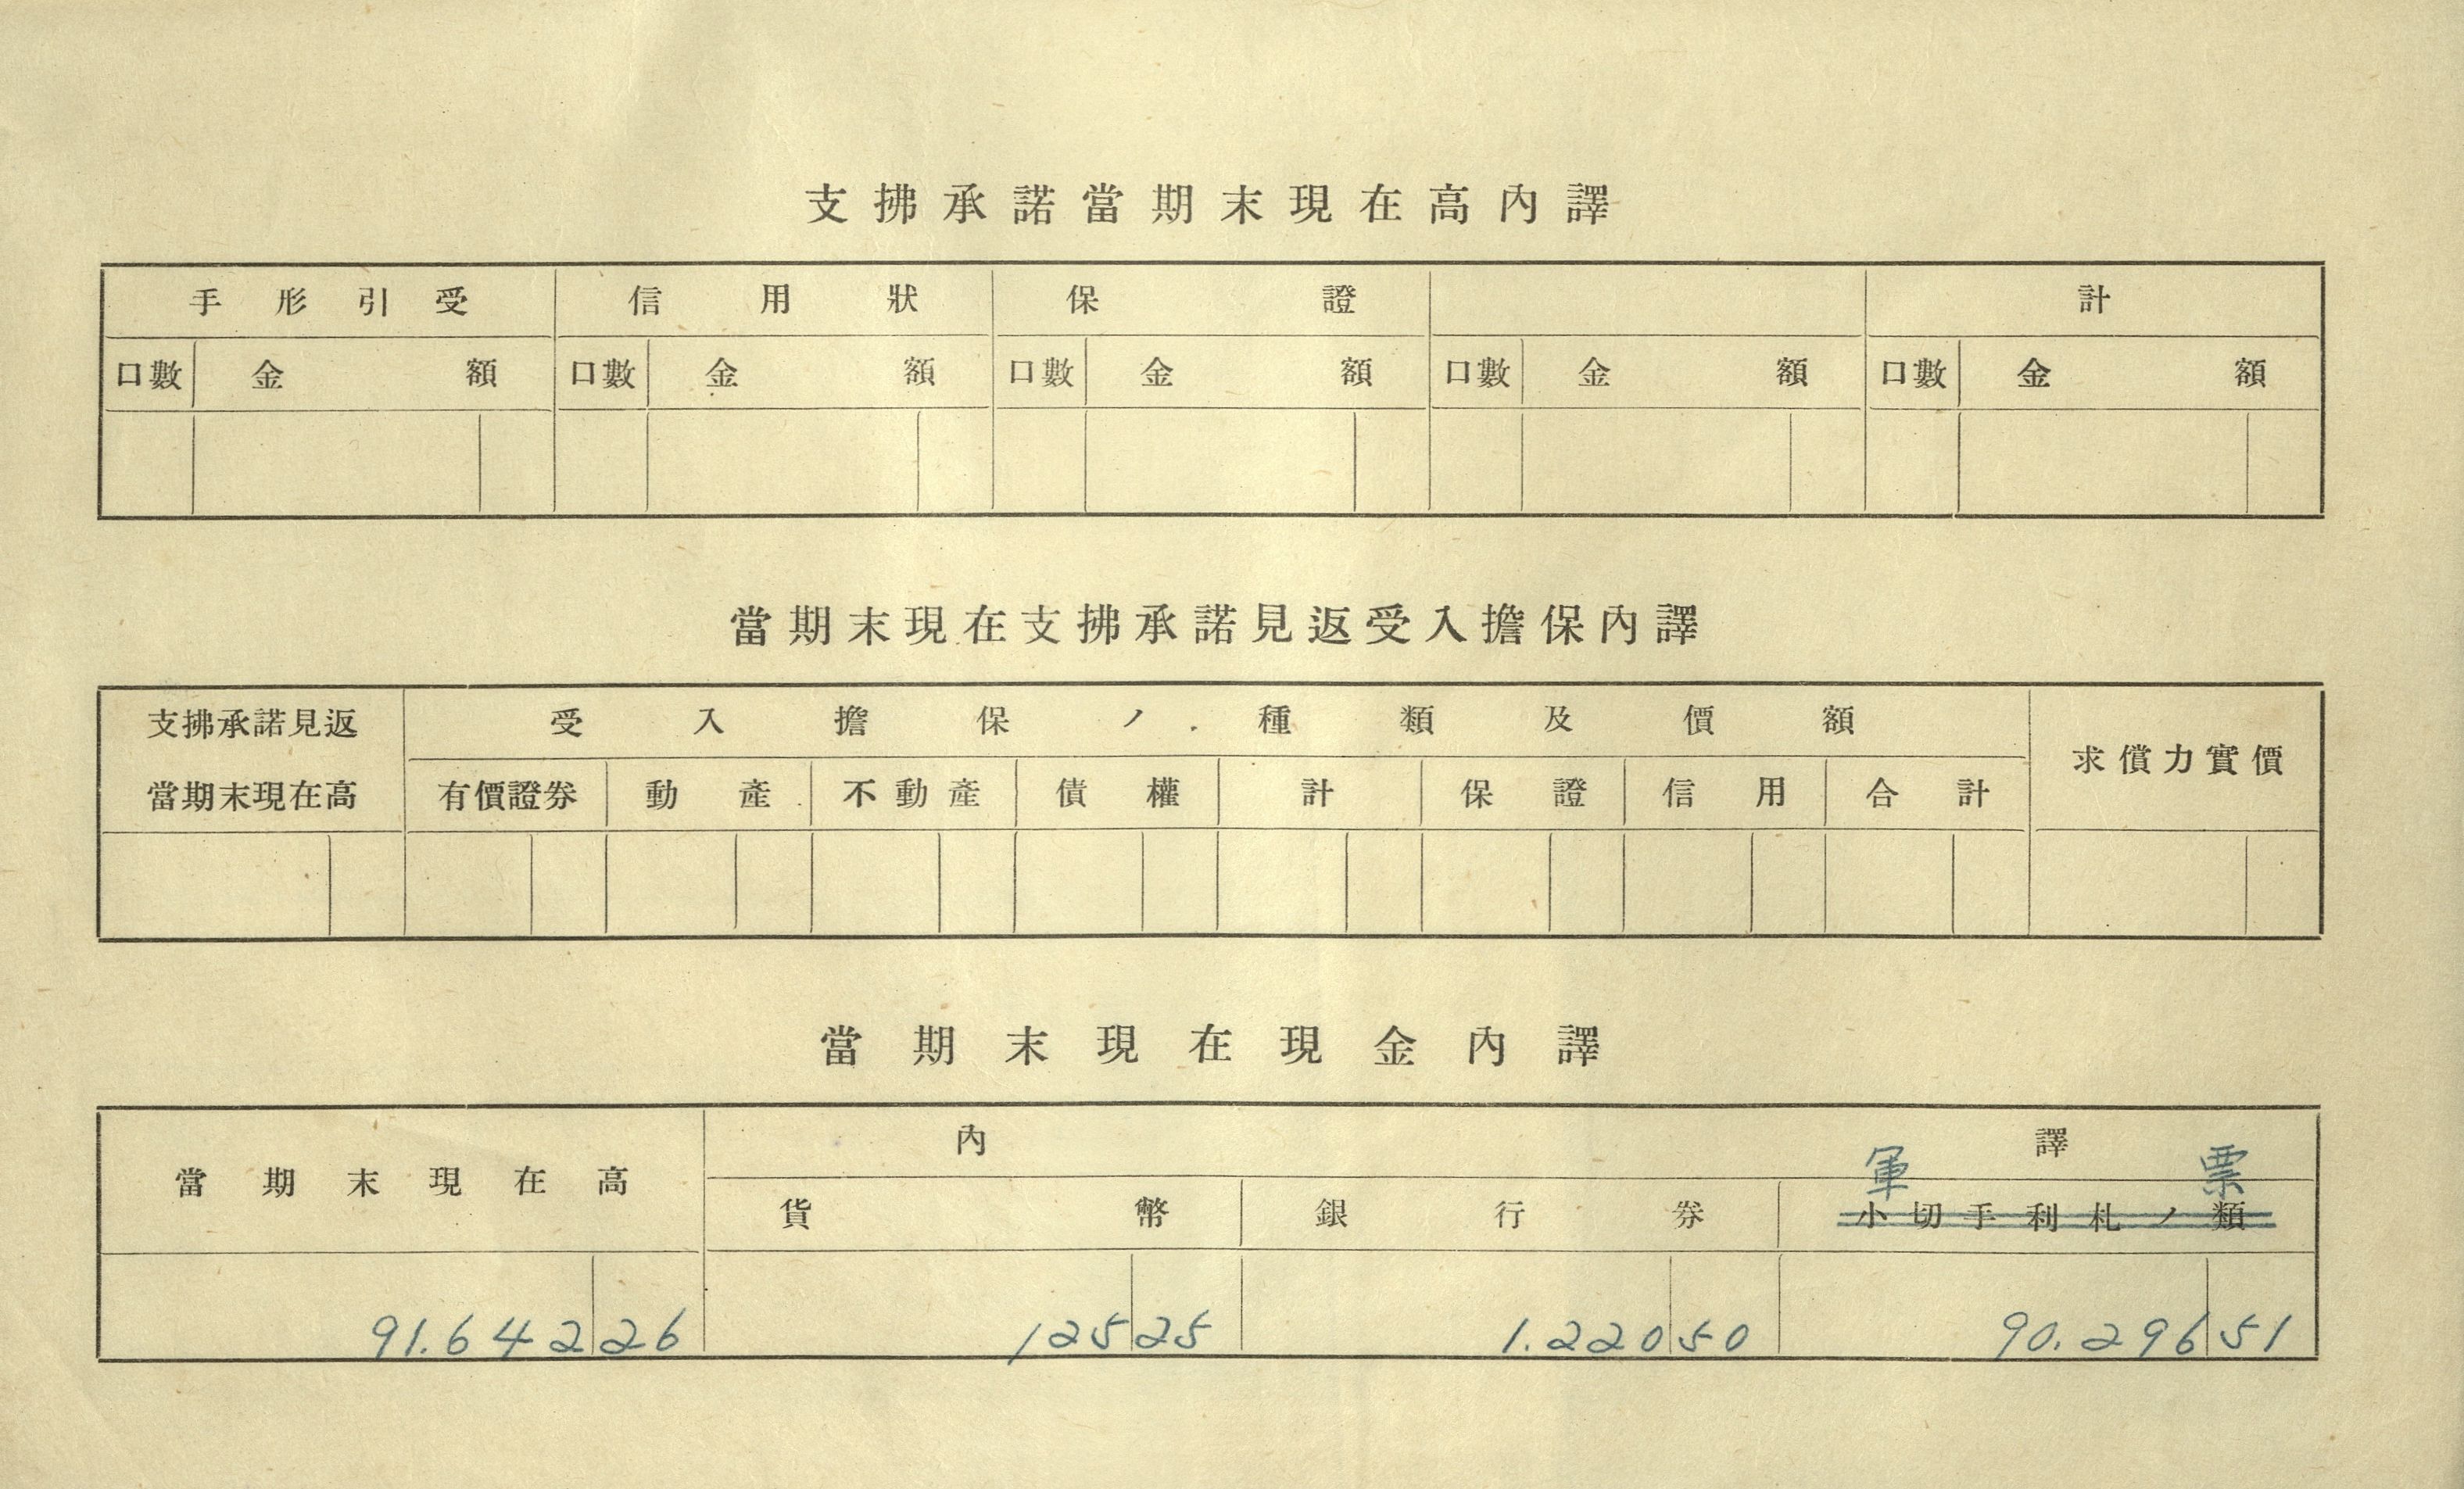 支拂承諾當期末現在高內譯
手形引受 信用狀 保證 計
口數 金額 口數 金額 口數 金額 口數 金額 口數 金額
當期末現在支拂承諾見返受入擔保內譯
支拂承諾見返 受入擔保ノ種類及價額
求償力實價
當期末現在高 有價證券 動產 不動產 債權 計 保證 信用 合計
當期末現在現金內譯
內譯
軍票
當期末現在高 貨幣 銀行券 小切手利札ノ類
91.642 26 125 25 1.220 50 90.296 51